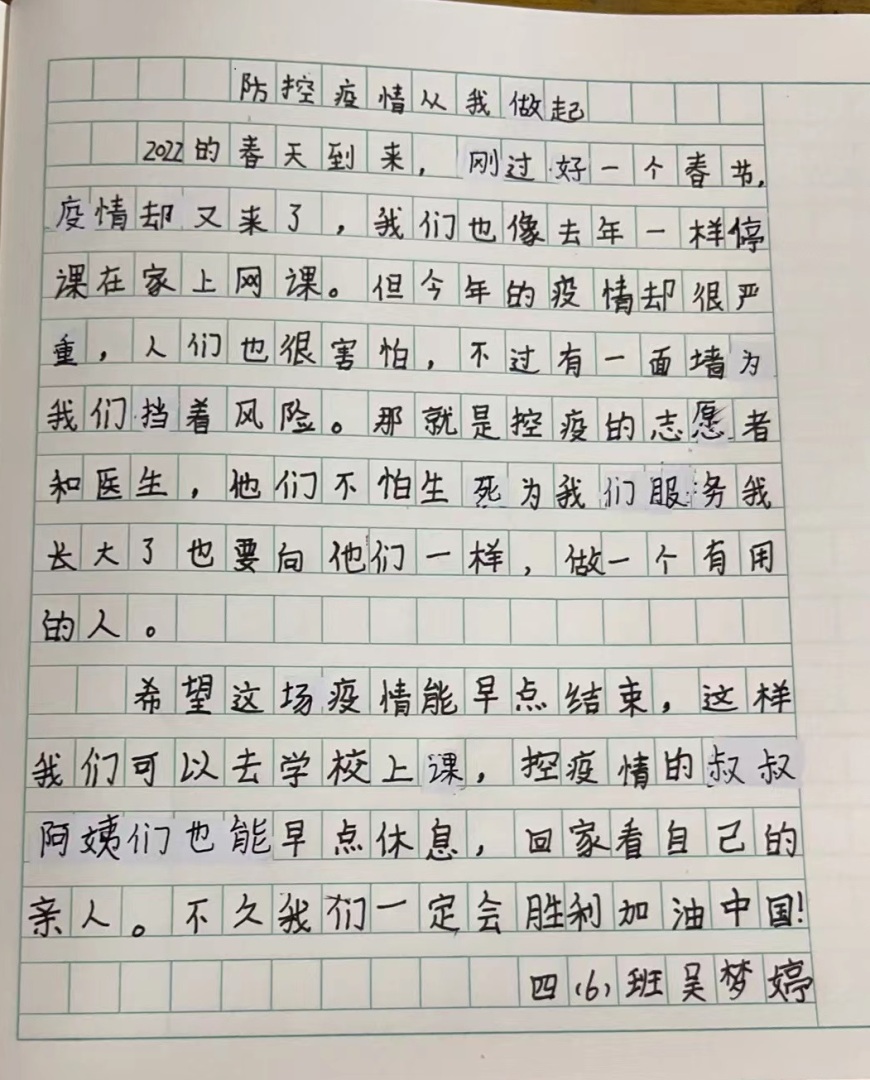 防控疫情从我做起
2022的春天到来，刚过好一个春节，
疫情却又来了，我们也像去年一样停
课在家上网课。但今年的疫情却很严
重，人们也很害怕，不过有一面墙为
我们挡着风险。那就是控疫的志愿者
和医生，他们不怕生死为我们服务我
长大了也要向他们一样，做一个有用
的人。
希望这场疫情能早点结束，这样
我们可以去学校上课，控疫情的叔叔
阿姨们也能早点休息，回家看自己的
亲人。不久我们一定会胜利加油中国！
四（6）班吴梦婷